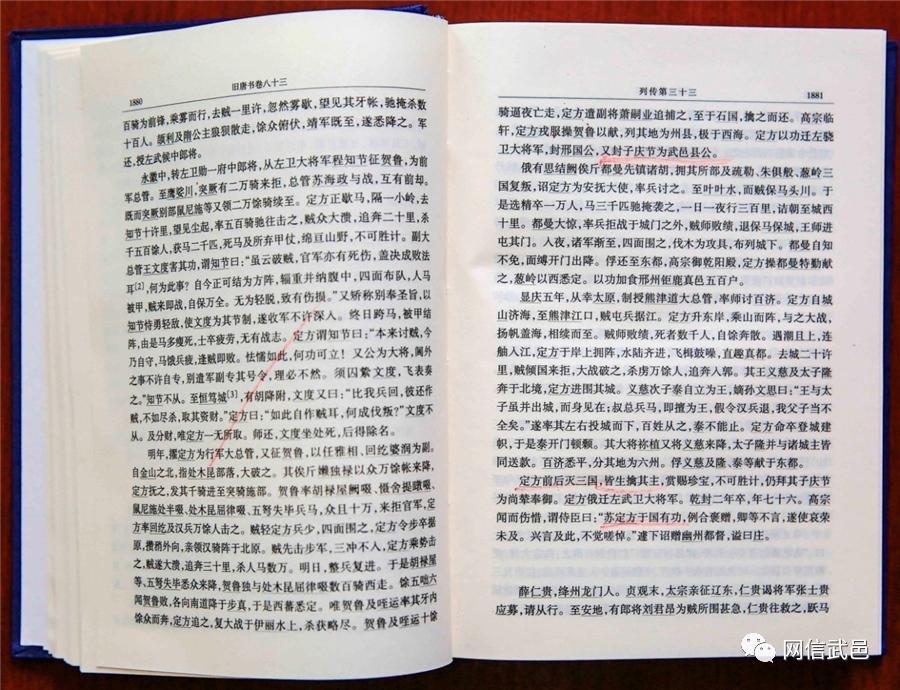 1880
旧唐书卷八十三
百骑为前锋,乘雾而行,去贼一里许,忽然雾歇,望见其牙帐,驰掩杀数
十百人。颉利及隋公主狼狈散走,馀众俯伏,靖军既至,遂悉降之。军
还,授左武候中郎将。
永徽中,转左卫勋一府中郎将,从左卫大将军程知节征贺鲁,为前
军总管。至鹰娑川,突厥有二万骑来拒,总管苏海政与战,互有前却。
既而突厥别部鼠尼施等又领二万馀骑续至。定方正歇马,隔一小岭,去
知节十许里,望见尘起,率五百骑驰往击之,贼众大溃,追奔二十里,杀
千五百馀人,获马二千匹,死马及所弃甲仗,绵亘山野,不可胜计。副大
总管王文度害其功,谓知节曰:“虽云破贼,官军亦有死伤,盖决成败法
耳[2],何为此事?自今正可结为方阵,辎重并纳腹中,四面布队,人马
被甲,贼来即战,自保万全。无为轻脱,致有伤损。”又矫称别奉圣旨,以
知节恃勇轻敌,使文度为其节制,遂收军不许深入。终日跨马,被甲结
阵,由是马多瘦死,士卒疲劳,无有战志。定方谓知节曰:“本来讨贼,今
乃自守,马饿兵疲,逢贼即败。怯懦如此,何功可立!又公为大将,阃外
之事不许自专,别遣军副专其号令,理必不然。须囚絷文度,飞表奏
之。”知节不从。至恒笃城[3],有胡降附,文度又曰:“比我兵回,彼还作
贼,不如尽杀,取其资财。”定方曰:“如此自作贼耳,何成伐叛?”文度不
从。及分财,唯定方一无所取。师还,文度坐处死,后得除名。
明年,擢定方为行军大总管,又征贺鲁,以任雅相、回纥婆润为副。
自金山之北,指处木昆部落,大破之。其俟斤懒独禄以众万馀帐来降,
定方抚之,发其千骑进至突骑施部。贺鲁率胡禄屋阙啜、慑舍提暾啜、
鼠尼施处半啜、处木昆屈律啜、五弩失毕兵马,众且十万,来拒官军,定
方率回纥及汉兵万馀人击之。贼轻定方兵少,四面围之,定方令步卒据
原,攒矟外向,亲领汉骑阵于北原。贼先击步军,三冲不入,定方乘势击
之,贼遂大溃,追奔三十里,杀人马数万。明日,整兵复进。于是胡禄屋
等、五弩失毕悉众来降,贺鲁独与处木昆屈律啜数百骑西走。馀五咄六
闻贺鲁败,各向南道降于步真,于是西蕃悉定。唯贺鲁及咥运率其牙内
馀众而奔,定方追之,复大战于伊丽水上,杀获略尽。贺鲁及咥运十馀
列传第三十三
1881
骑逼夜亡走,定方遣副将萧嗣业追捕之,至于石国,擒之而还。高宗临
轩,定方戎服操贺鲁以献,列其地为州县,极于西海。定方以功迁左骁
卫大将军,封邢国公,又封子庆节为武邑县公。
俄有思结阙俟斤都曼先镇诸胡,拥其所部及疏勒、朱俱般、葱岭三
国复叛,诏定方为安抚大使,率兵讨之。至叶叶水,而贼保马头川。于
是选精卒一万人,马三千匹驰掩袭之,一日一夜行三百里,诘朝至城西
十里。都曼大惊,率兵拒战于城门之外,贼师败绩,退保马保城,王师进
屯其门。入夜,诸军渐至,四面围之,伐木为攻具,布列城下。都曼自知
不免,面缚开门出降。俘还至东都,高宗御乾阳殿,定方操都曼特勤献
之,葱岭以西悉定。以功加食邢州钜鹿真邑五百户。
显庆五年,从幸太原,制授熊津道大总管,率师讨百济。定方自城
山济海,至熊津江口,贼屯兵据江。定方升东岸,乘山而阵,与之大战,
扬帆盖海,相续而至。贼师败绩,死者数千人,自馀奔散。遇潮且上,连
舳入江,定方于岸上拥阵,水陆齐进,飞楫鼓噪,直趣真都。去城二十许
里,贼倾国来拒,大战破之,杀虏万馀人,追奔入郭。其王义慈及太子隆
奔于北境,定方进围其城。义慈次子泰自立为王,嫡孙文思曰:“王与太
子虽并出城,而身见在;叔总兵马,即擅为王,假令汉兵退,我父子当不
全矣。”遂率其左右投城而下,百姓从之,泰不能止。定方命卒登城建
帜,于是泰开门顿颡。其大将祢植又将义慈来降,太子隆并与诸城主皆
同送款。百济悉平,分其地为六州。俘义慈及隆、泰等献于东都。
定方前后灭三国,皆生擒其主,赏赐珍宝,不可胜计,仍拜其子庆节
为尚辇奉御。定方俄迁左武卫大将军。乾封二年卒,年七十六。高宗
闻而伤惜,谓侍臣曰:“苏定方于国有功,例合褒赠,卿等不言,遂使哀荣
未及。兴言及此,不觉嗟悼。”遽下诏赠幽州都督,谥曰庄。
薛仁贵,绛州龙门人。贞观末,太宗亲征辽东,仁贵谒将军张士贵
应募,请从行。至安地,有郎将刘君昂为贼所围甚急,仁贵往救之,跃马
网信武邑